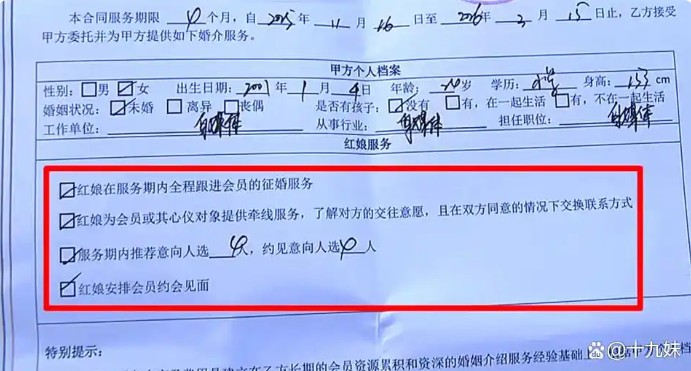 本合同服务期限 4 个月,自 2025 年 11 月 16 日至 2026 年 3 月 15 日止,乙方接受
甲方委托并为甲方提供如下婚介服务。
甲方个人档案
性别:□男 ☑女 出生日期:2001 年 1 月 4 日 年龄: 岁 学历: 身高:153 cm
婚姻状况:☑未婚 □离异 □丧偶 是否有孩子:☑没有 □有,在一起生活 □有,不在一起生活
工作单位:自媒体 从事行业:自媒体 担任职位:自媒体
红娘服务
☑红娘在服务期内全程跟进会员的征婚服务
☑红娘为会员或其心仪对象提供牵线服务,了解对方的交往意愿,且在双方同意的情况下交换联系方式
☑服务期内推荐意向人选 4 人,约见意向人选 4 人
☑红娘安排会员约会见面
特别提示:
费用是建立在乙方长期的会员资源累积和资深的婚姻介绍服务经验基础上
百家号@十九妹